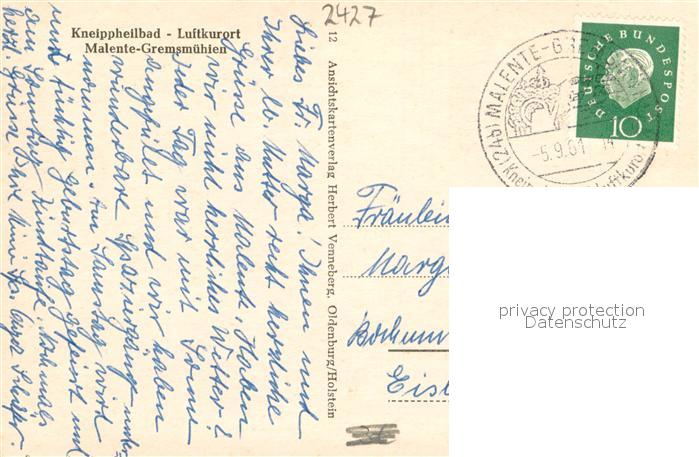 2427
Kneippheilbad - Luftkurort
Malente-Gremsmühlen
12 Ansichtskartenverlag Herbert Venneberg, Oldenburg/Holstein
Liebes Frl. Marga! Ihnen und
Ihrer lb. Mutter recht herzliche
Grüsse aus Malente. Haben
wir nicht herrliches Wetter?
Jeder Tag war mit Sonne
angefüllt und wir haben
wunderbare Spaziergänge unter-
nommen. Am Samstag wird
noch tüchtig Geburtstag gefeiert und
am Sonntag
herzl. Grüsse Ihre
DEUTSCHE BUNDESPOST
10
(24b) MALENTE-GRE
-5.9.61
Kneip Luftkuro
Fräulein
Marg
Bochum
Eis
privacy protection
Datenschutz